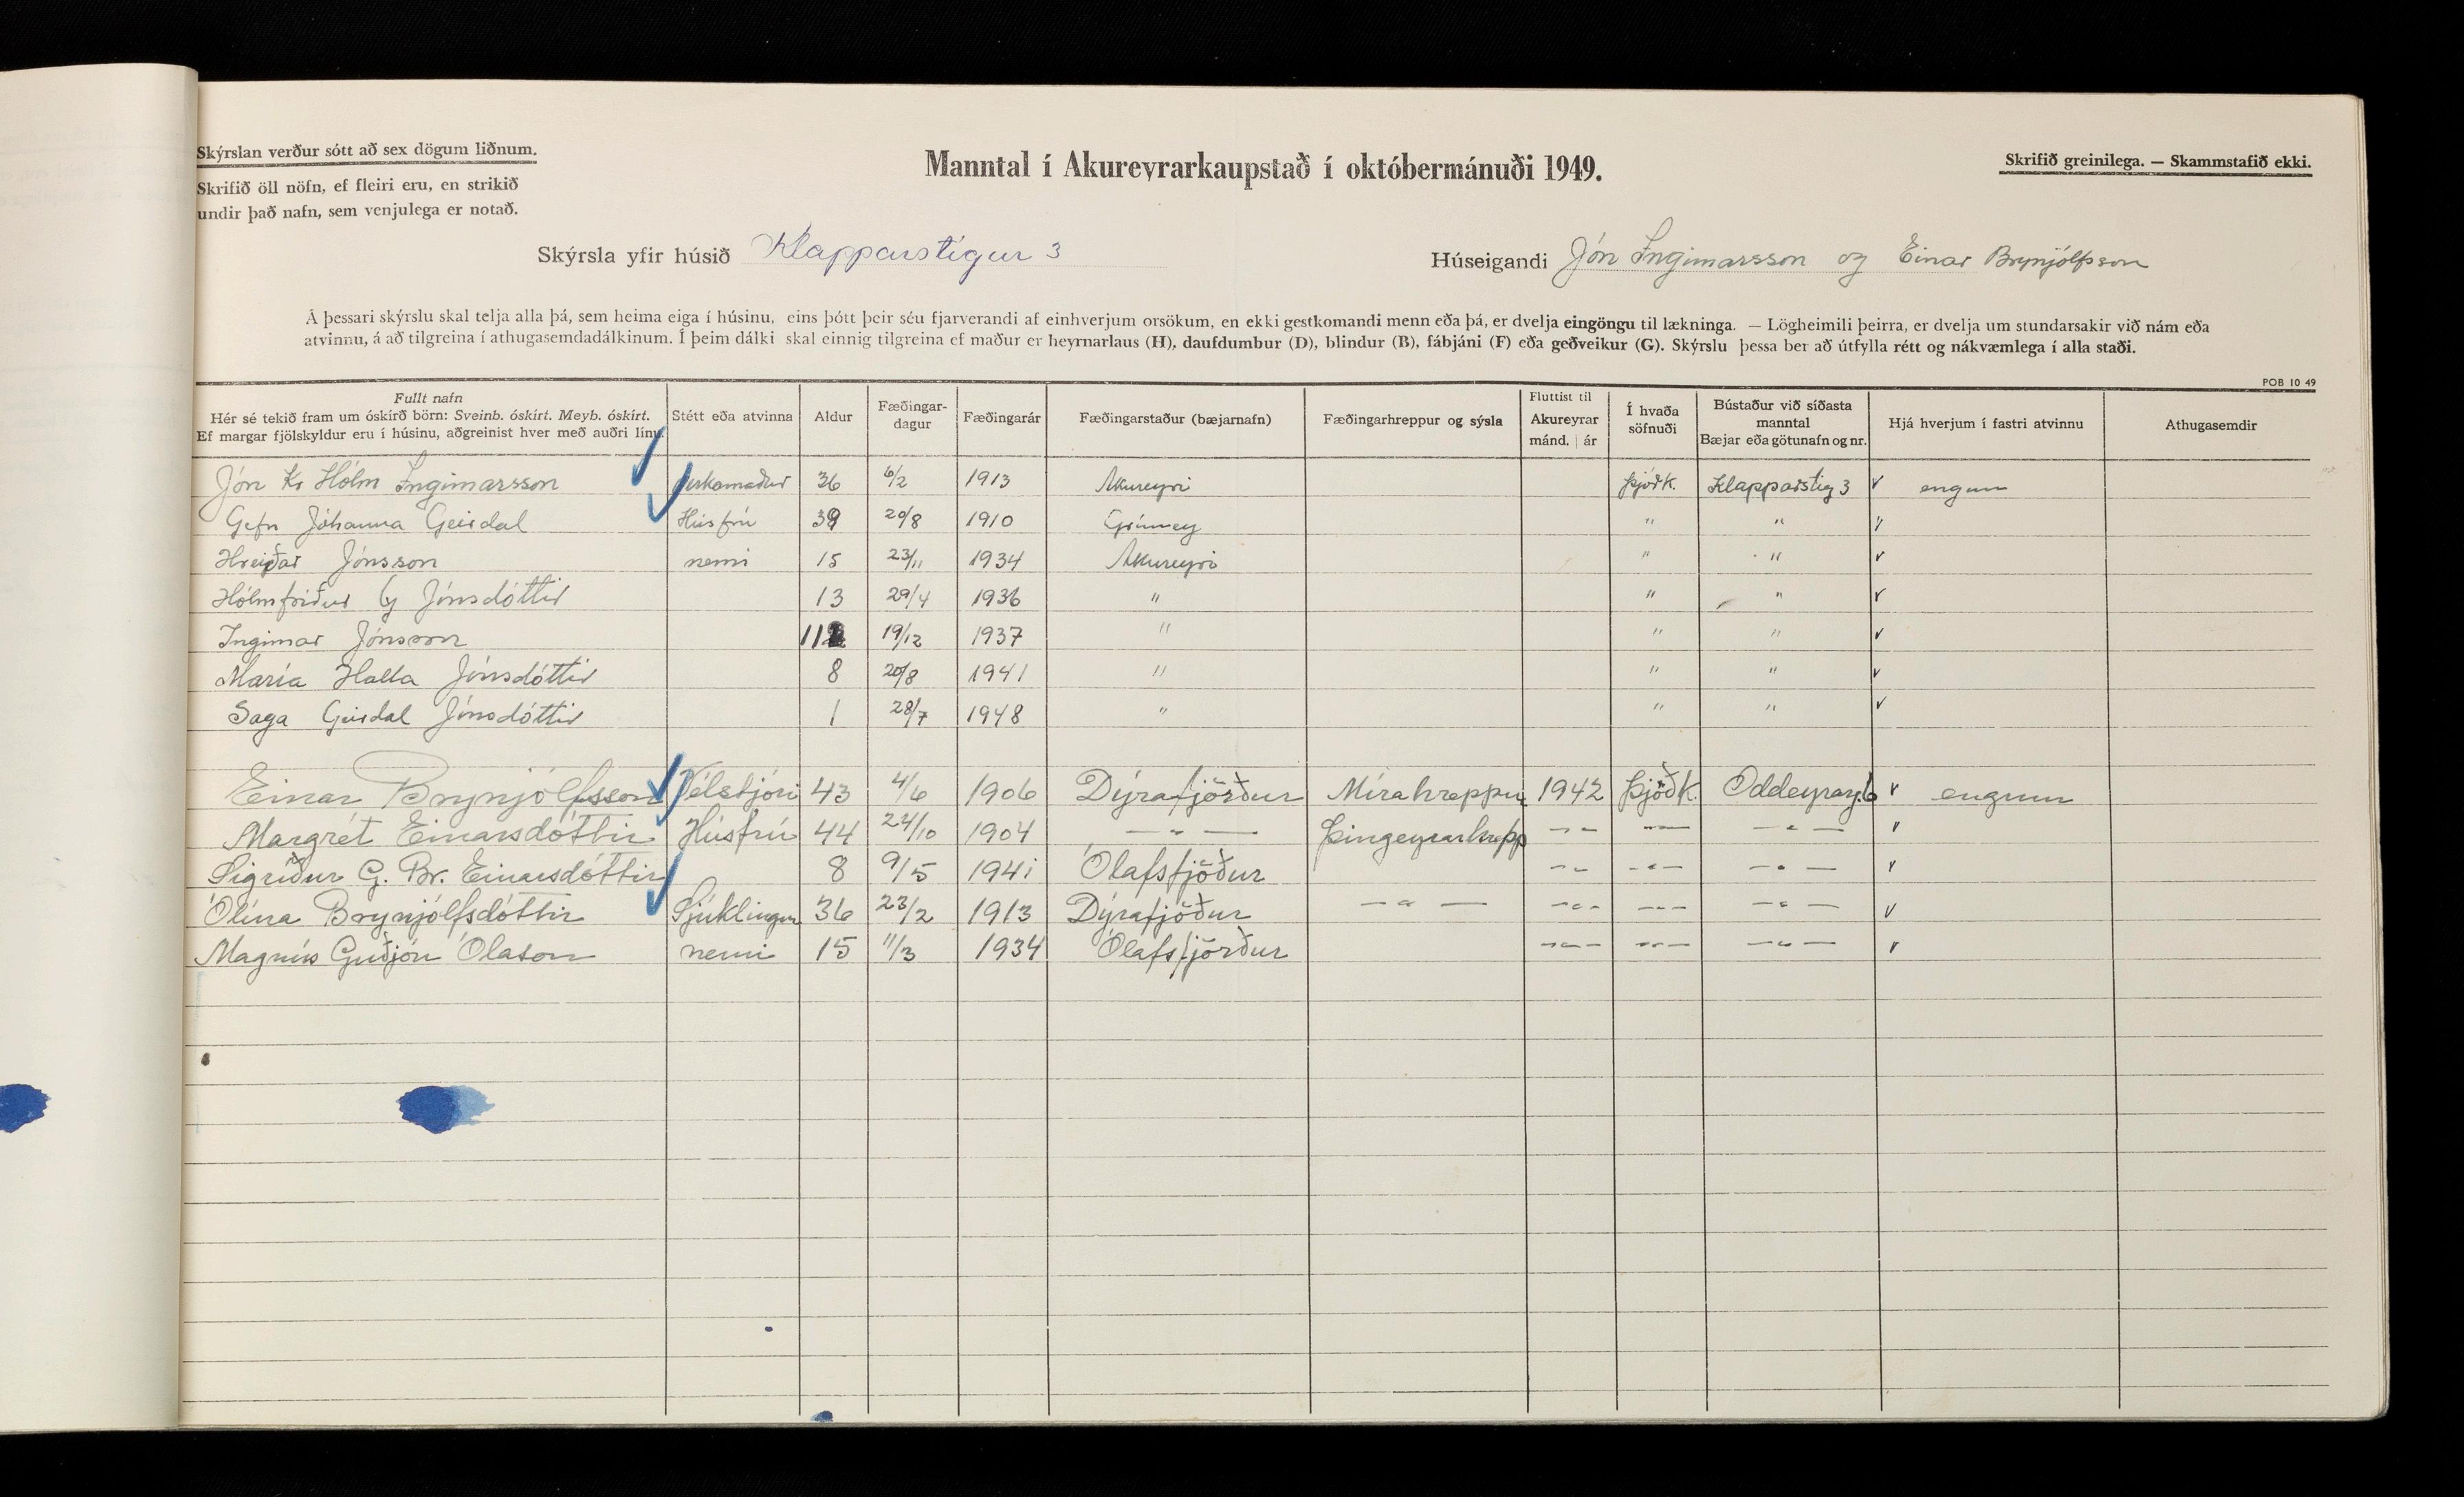 Skýrslan verður sótt að sex dögum liðnum.
Skrifið öll nöfn, ef fleiri eru, en strikið
undir það nafn, sem venjulega er notað.
Manntal í Akureyrarkaupstað í októbermánuði 1949.
Skrifið greinilega. — Skammstafið ekki.
Skýrsla yfir húsið Klapparstígur 3
Húseigandi Jón Ingimarsson og Einar Brynjólfsson
Á þessari skýrslu skal telja alla þá, sem heima eiga í húsinu, eins þótt þeir séu fjarverandi af einhverjum orsökum, en ekki gestkomandi menn eða þá, er dvelja eingöngu til lækninga. — Lögheimili þeirra, er dvelja um stundarsakir við nám eða
atvinnu, á að tilgreina í athugasemdadálkinum. Í þeim dálki skal einnig tilgreina ef maður er heyrnarlaus (H), daufdumbur (D), blindur (B), fábjáni (F) eða geðveikur (G). Skýrslu þessa ber að útfylla rétt og nákvæmlega í alla staði.
POB 10 49
Fullt nafn
Hér sé tekið fram um óskírð börn: Sveinb. óskírt. Meyb. óskírt.
Ef margar fjölskyldur eru í húsinu, aðgreinist hver með auðri línu.
Stétt eða atvinna
Aldur
Fæðingar-
dagur
Fæðingarár
Fæðingarstaður (bæjarnafn)
Fæðingarhreppur og sýsla
Fluttist til
Akureyrar
mánd. | ár
Í hvaða
söfnuði
Bústaður við síðasta
manntal
Bæjar eða götunafn og nr.
Hjá hverjum í fastri atvinnu
Athugasemdir
Jón Kr Hólm Ingimarsson verkamaður 36 6/2 1913 Akureyri Þjóðk. Klapparstíg 3 engum
Gefn Jóhanna Geirdal Húsfrú 39 20/8 1910 Grímsey " " "
Hreiðar Jónsson nemi 15 23/11 1934 Akureyri " "
Hólmfríður G Jónsdóttir 13 29/4 1936 " " "
Ingimar Jónsson 11 19/12 1937 " " "
María Halla Jónsdóttir 8 20/8 1941 " " "
Saga Geirdal Jónsdóttir 1 28/7 1948 " " "
Einar Brynjólfsson Vélstjóri 43 4/6 1906 Dýrafjörður Mírahreppur 1942 Þjóðk. Oddeyrarg. 6 engum
Margrét Einarsdóttir Húsfrú 44 24/10 1904 — " — Þingeyrarhrepp — — — " — — " —
Sigríður G. Br. Einarsdóttir 8 9/5 1941 Ólafsfjöður — — — " — — " —
Ólína Brynjólfsdóttir Sjúklingur 36 23/2 1913 Dýrafjöður — " — — " — — " — — " —
Magnús Guðjón Ólason nemi 15 11/3 1934 Ólafsfjörður — " — — " — — " —